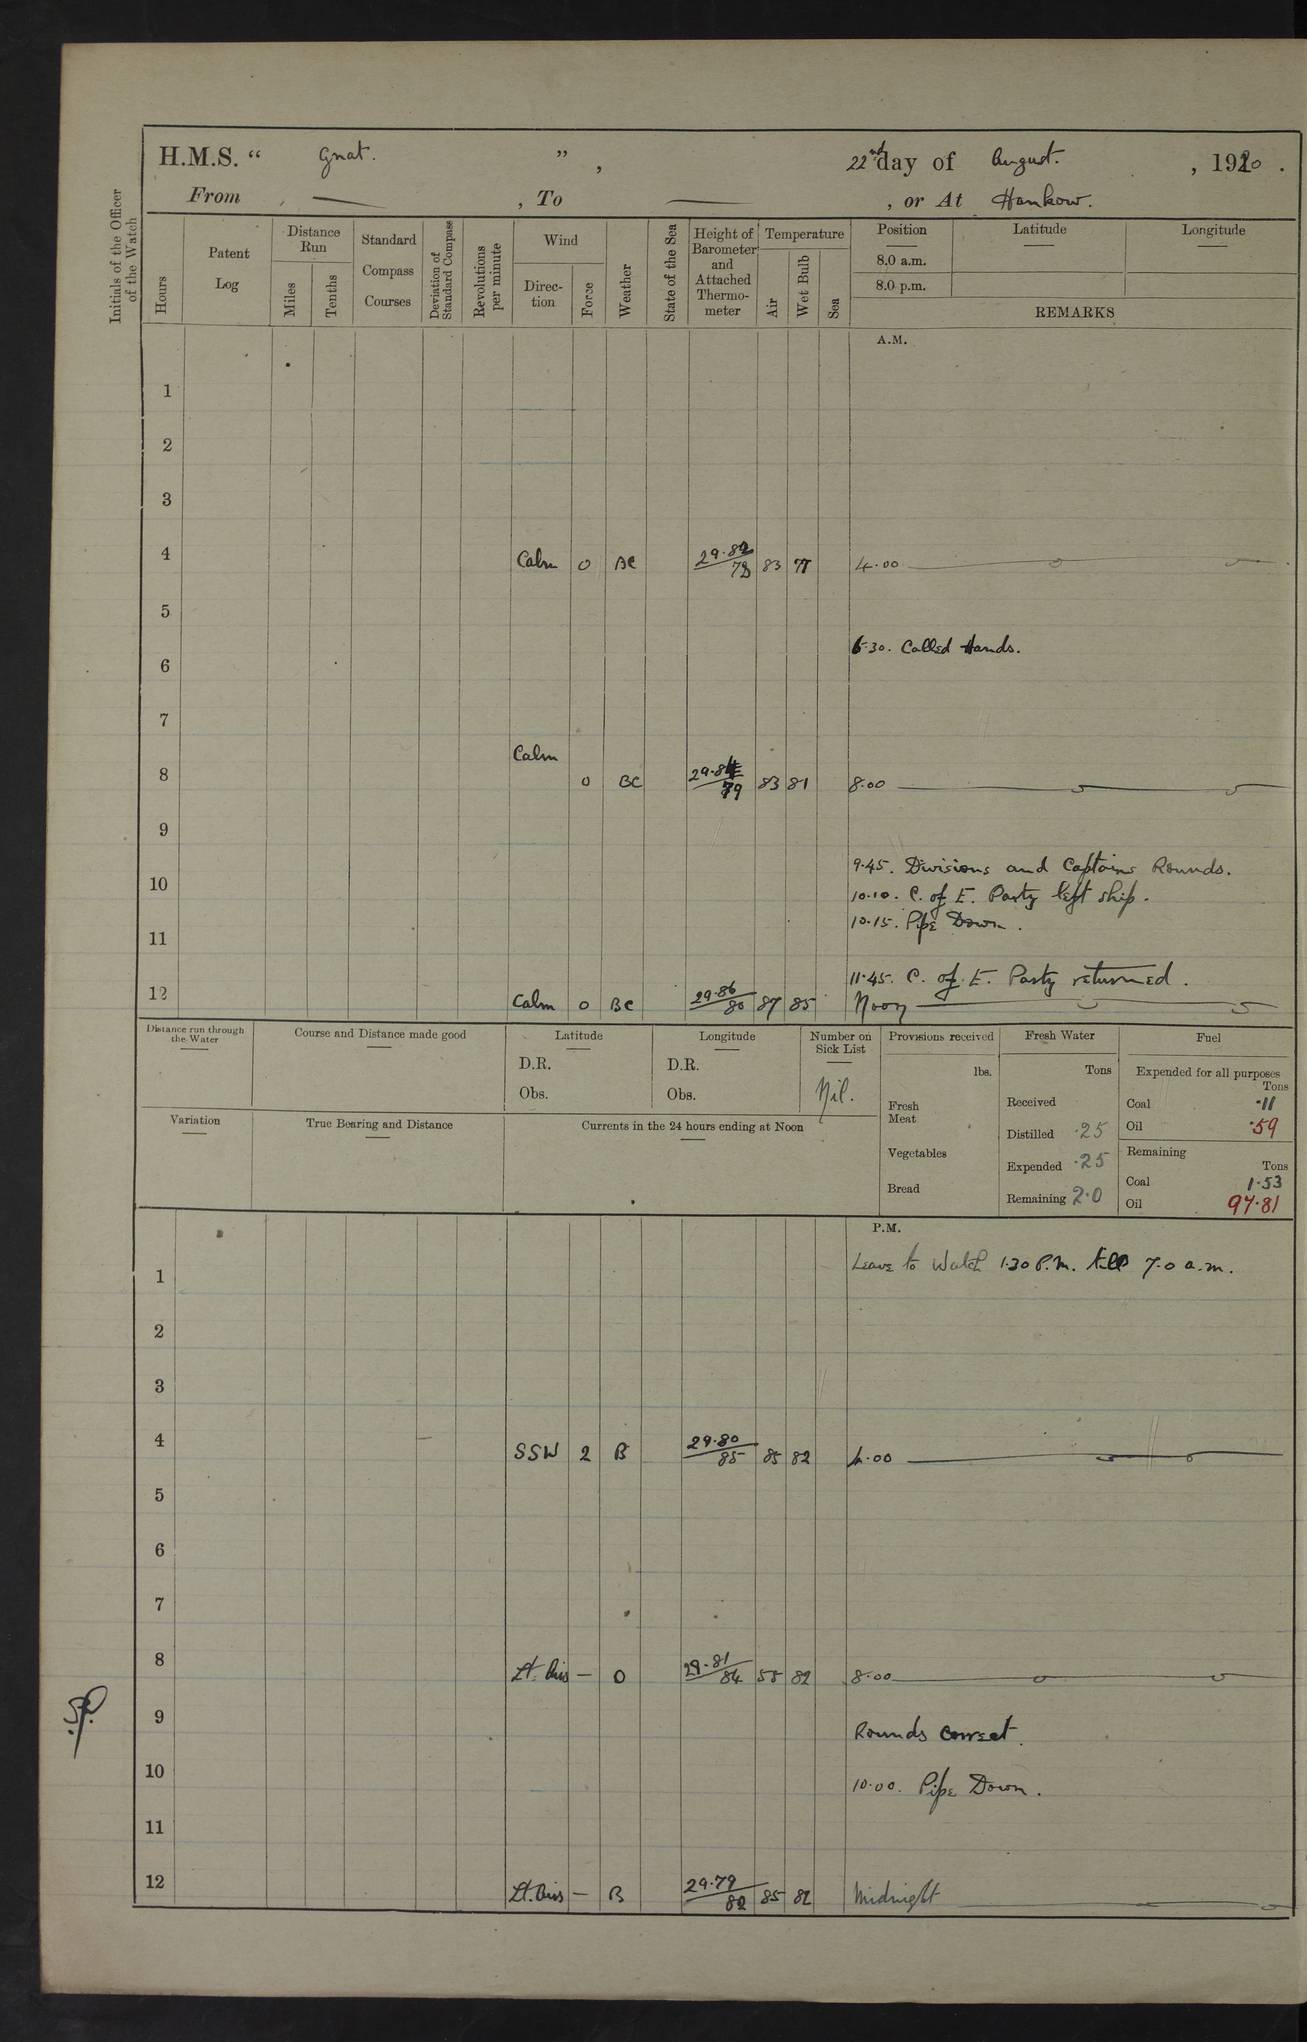 H.M.S. “ Gnat. ” , 22nd day of August. , 1920 .
From — , To — , or At Hankow.
Initials of the Officer of the Watch
Hours
Patent Log
Distance Run
Miles
Tenths
Standard Compass Courses
Deviation of Standard Compass
Revolutions per minute
Wind
Direc-tion
Force
Weather
State of the Sea
Height of Barometer and Attached Thermo-meter
Temperature
Air
Wet Bulb
Sea
Position Latitude Longitude
8.0 a.m.
8.0 p.m.
REMARKS
A.M.
1
2
3
4 Calm 0 BC 29.82/78 83 77 4.00
5
5.30. Called Hands.
6
7
8 Calm 0 BC 29.84/79 83 81 8.00
9
9.45. Divisions and Captains Rounds.
10 10.10. C. of E. Party left ship.
10.15. Pipe Down.
11
11.45. C. of E. Party returned.
12 Calm 0 BC 29.86/80 87 85 Noon
Distance run through the Water
Course and Distance made good
Latitude
D.R.
Obs.
Longitude
D.R.
Obs.
Number on Sick List
Nil.
Provisions received
lbs.
Fresh Meat
Vegetables
Bread
Fresh Water
Tons
Received
Distilled .25
Expended .25
Remaining 2.0
Fuel
Expended for all purposes
Tons
Coal .11
Oil .59
Remaining
Tons
Coal 1.53
Oil 97.81
Variation
True Bearing and Distance
Currents in the 24 hours ending at Noon
P.M.
Leave to Watch 1.30 P.M. till 7.0 a.m.
1
2
3
4 SSW 2 B 29.80/85 85 82 4.00
5
6
7
8 Lt. Airs — O 29.81/84 85 82 8.00
9 Rounds Correct.
10 10.00. Pipe Down.
11
12 Lt. Airs — B 29.79/82 85 82 Midnight